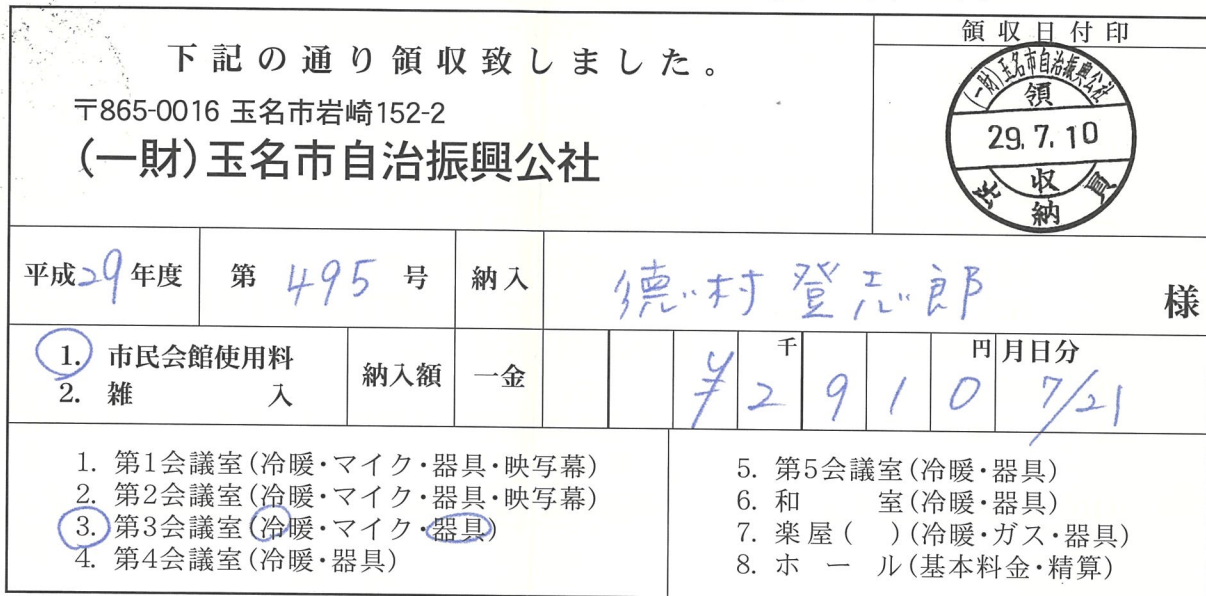 下記の通り領収致しました。
〒865-0016 玉名市岩崎152-2
(一財)玉名市自治振興公社
領収日付印
(一財)玉名市自治振興公社
領
29.7.10
収
出納員
平成29年度 第 495 号 納入 德村登志郎 様
1. 市民会館使用料
2. 雑 入
納入額 一金 ¥2910 千 円 月日分 7/21
1. 第1会議室(冷暖・マイク・器具・映写幕)
2. 第2会議室(冷暖・マイク・器具・映写幕)
3. 第3会議室(冷暖・マイク・器具)
4. 第4会議室(冷暖・器具)
5. 第5会議室(冷暖・器具)
6. 和 室(冷暖・器具)
7. 楽屋( )(冷暖・ガス・器具)
8. ホール(基本料金・精算)